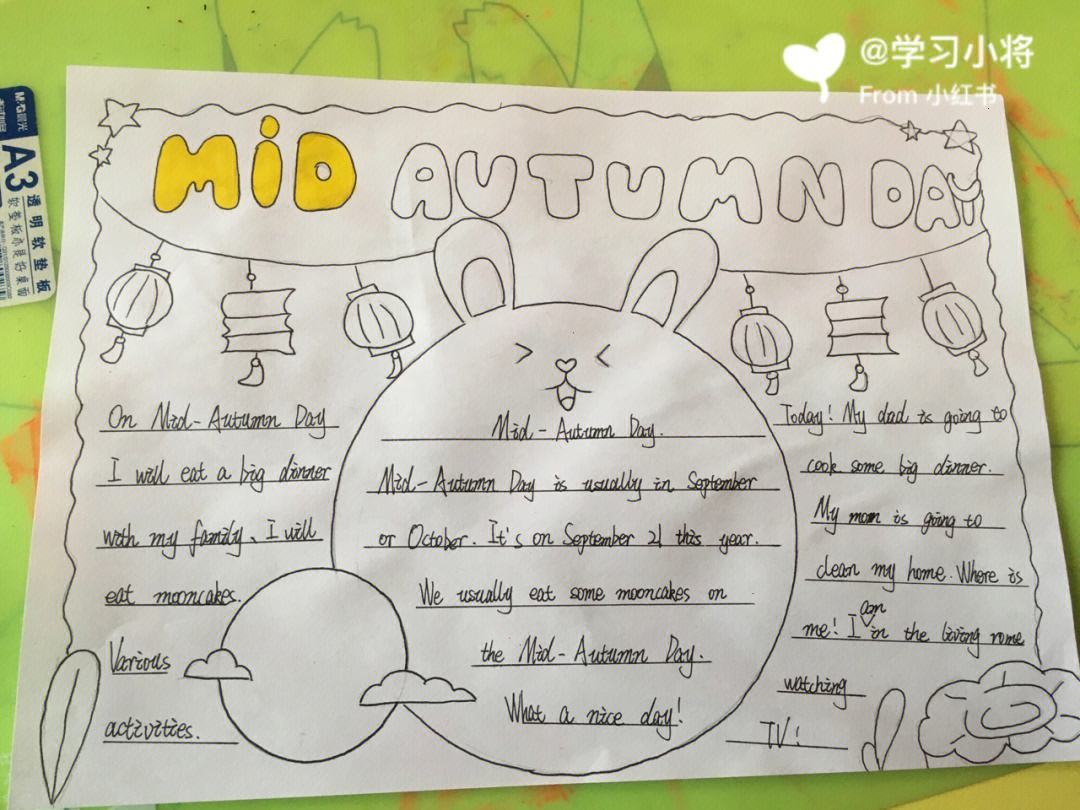 @学习小将
From 小红书
M&G晨光
A3
透明软垫板
MID AUTUMN DAY
On Mid-Autumn Day
I will eat a big dinner
with my family、I will
eat mooncakes.
Various
activities.
Mid-Autumn Day.
Mid-Autumn Day is usually in September
or October. It's on September 21 this year.
We usually eat some mooncakes on
the Mid-Autumn Day.
What a nice day!
Today! My dad is going to
cook some big dinner.
My mom is going to
clean my home. Where is
me! I am in the living rome
watching
TV!